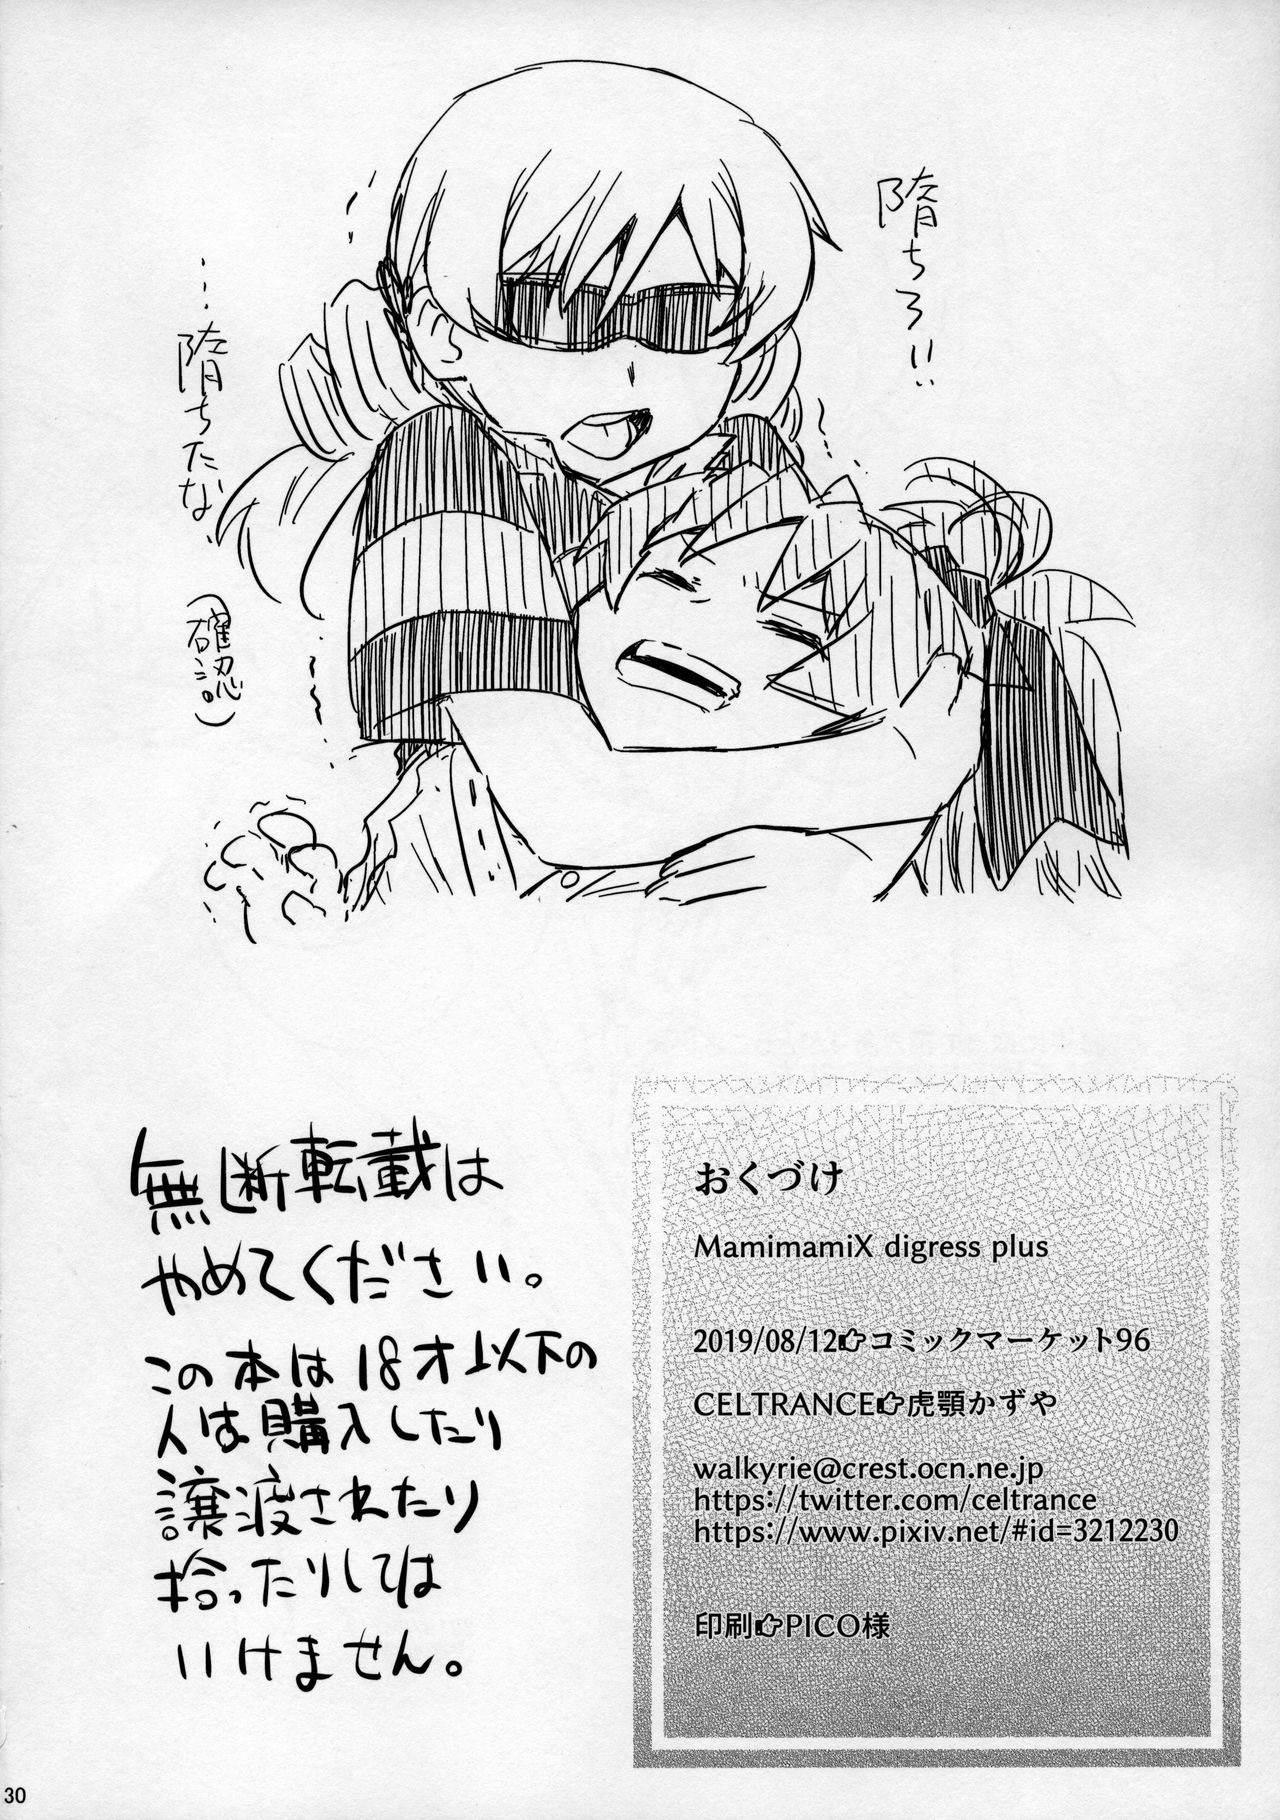 堕ちろ!!
…堕ちたな
（確認）
無断転載は
やめてください。
この本は18才以下の
人は購入したり
譲渡されたり
拾ったりしては
いけません。
おくづけ
MamimamiX digress plus
2019/08/12👉コミックマーケット96
CELTRANCE👉虎顎かずや
walkyrie@crest.ocn.ne.jp
https://twitter.com/celtrance
https://www.pixiv.net/#id=3212230
印刷👉PICO様
30